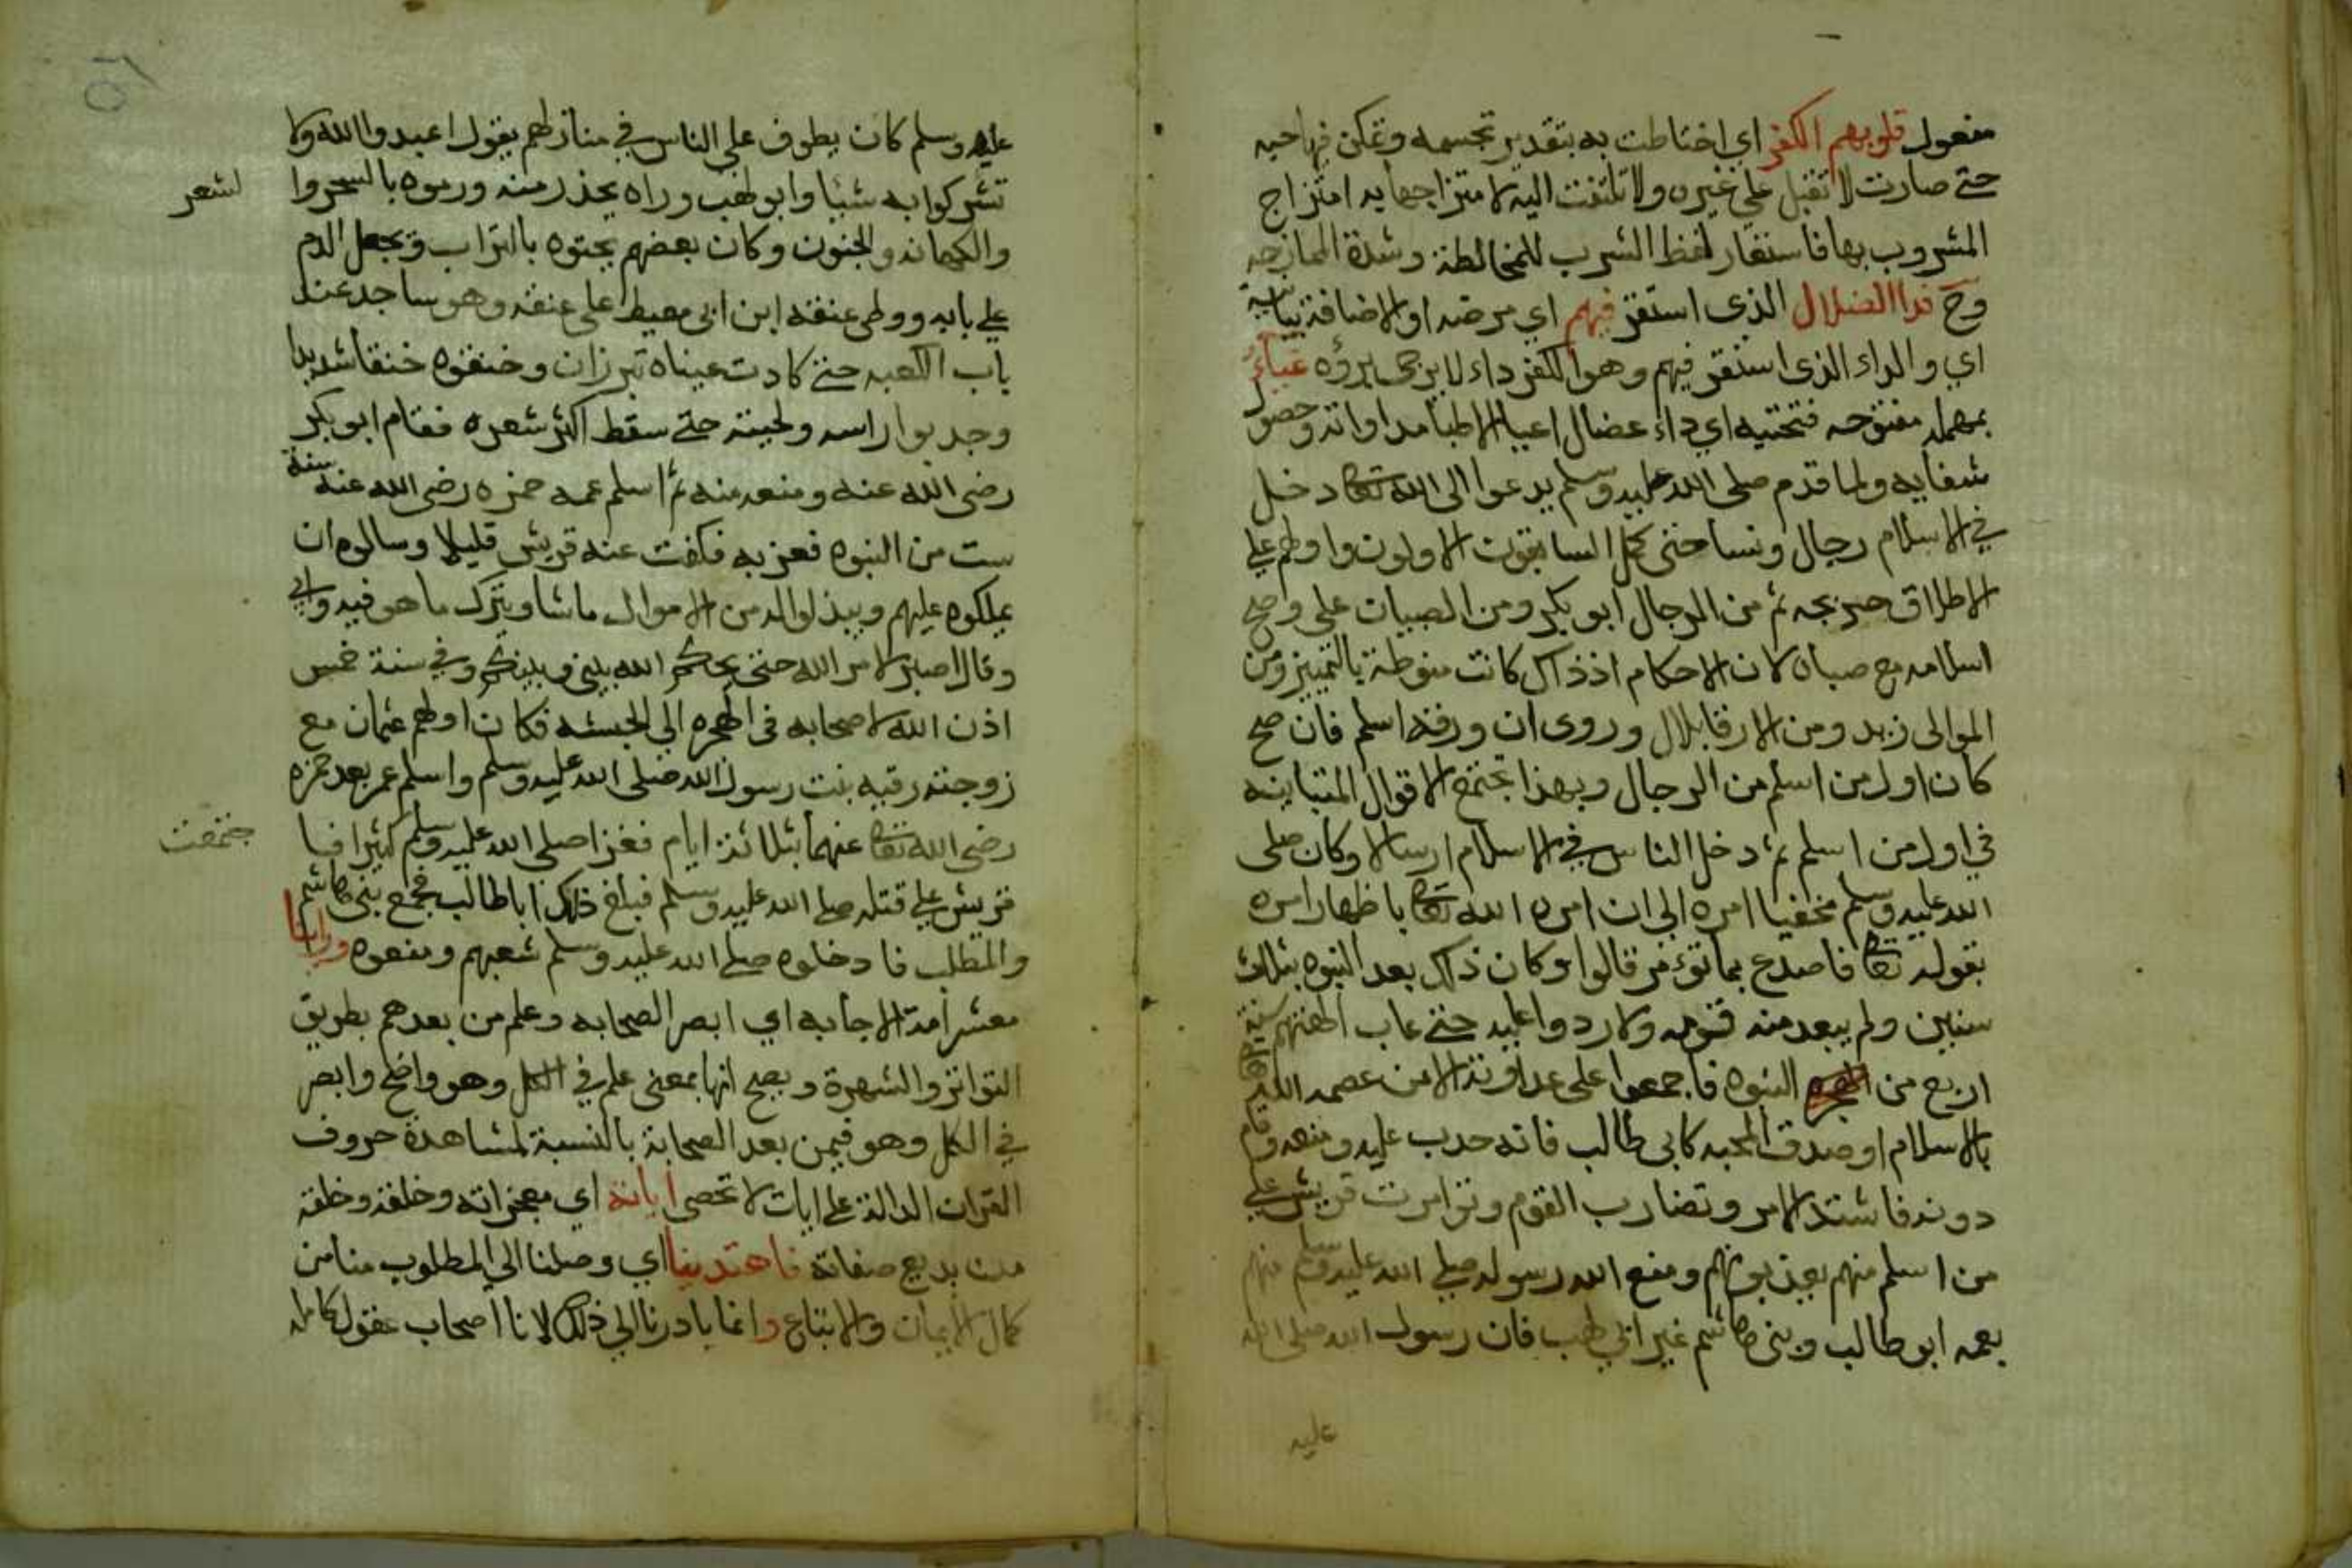 مفعول قلوبهم الكفر اي اختلطت به بتقدير تجسمه وتمكن فيها حبه
حتي صارت لا تقبل علي غيره ولا تلتفت اليه لامتزاجها به امتزاج
المشروب بها فاستعار لفظ الشرب للمخالطة وشدة الممازجه
وح فداا لضلال الذى استقر فيهم اي مرضه او الاضافة بيانية
اي والداء الذى استقر فيهم وهو الكفر داء لا يرجى برؤه عياء
بمهمله مفتوحه فتحتيه اي داء عضال اعيا الاطبا مداواته وحصول
شفايه ولما قدم صلى الله عليه وسلم يدعوا الى الله تعالى دخل
في الاسلام رجال ونسا حتى كمل السابقون الاولون واولهم علي
الاطلاق خديجه ثم من الرجال ابو بكر ومن الصبيان علي وصح
اسلامه مع صباه لان الاحكام اذ ذاك كانت منوطة بالتمييز ومن
الموالى زيد ومن الارقا بلال وروى ان ورقه اسلم فان صح
كان اول من اسلم من الرجال وبهذا تجتمع الاقوال المتباينه
في اول من اسلم ثم دخل الناس في الاسلام ارسالا وكان صلى
الله عليه وسلم مخفيا امره الى ان امره الله تعالى باظهار امره
بقوله تعالى فاصدع بما تؤمر قالوا وكان ذلك بعد النبوه بثلاث
سنين ولم يبعد منه قومه ولا ردوا عليه حتي عاب الهتهم سنة
اربع من النبوه فاجمعوا على عداوته الا من عصمه الله
بالاسلام او صدق المحبه كابى طالب فانه حدب عليه ومنعه وقام
دونه فاشتد الامر وتضارب القوم وتوامرت قريش علي
من اسلم منهم يعذبونهم ومنع الله رسوله صلي الله عليه وسلم منهم
بعمه ابو طالب وبنى هاشم غير ابي لهب فان رسول الله صلى الله
عليه
عليه وسلم كان يطوف على الناس في منازلهم يقول اعبدوا الله ولا
تشركوا به شيئا وابو لهب وراه يحذر منه ورموه بالسحر وا
لشعر
والكهانه والجنون وكان بعضهم يحثوه بالتراب ويجعل الدم
علي بابه ووطى عنقه ابن ابى معيط على عنقه وهو ساجد عند
باب الكعبه حتي كادت عيناه تبرزان وخنقوه خنقا شديدا
وجدبوا راسه ولحيته حتي سقط اكثر شعره فقام ابو بكر
رضى الله عنه ومنعه منه ثم اسلم عمه حمزه رضى الله عنه سنة
ست من النبوه فعز به فكفت عنه قريش قليلا وسالوه ان
يملكوه عليهم ويبذلوا له من الاموال ماشا ويترك ما هو فيه وابي
وقال اصبر لامر الله حتى يحكم الله بيني وبينكم وفي سنة خمس
اذن الله لاصحابه في الهجره الى الحبشه فكان اولهم عثمان مع
زوجته رقيه بنت رسول الله صلى الله عليه وسلم واسلم عمر بعد حمزه
رضى الله تعالى عنهما بثلاثة ايام فعزا صلى الله عليه وسلم كثيرا فـ
قريش علي قتله صلي الله عليه وسلم فبلغ ذلك ابا طالب فجمع بنى هاشم
والمطلب فادخلوه صلي الله عليه وسلم شعبهم ومنعوه وراينا
معشر امة الاجابه اي ابصر الصحابه وعلم من بعدهم بطريق
التواتر والشهرة ويصح انها بمعنى علم في الكل وهو واضح وابصر
في الكل وهو فيمن بعد الصحابة بالنسبة لمشاهدة حروف
القران الدالة علي ايات لا تحصى اياته اي معجزاته وخلقه وخلقه
من بديع صفاته فاهتدينا اي وصلنا الي المطلوب منا من
كمال الايمان والاتباع وانما بادرنا الي ذلك لاننا اصحاب عقول كامله